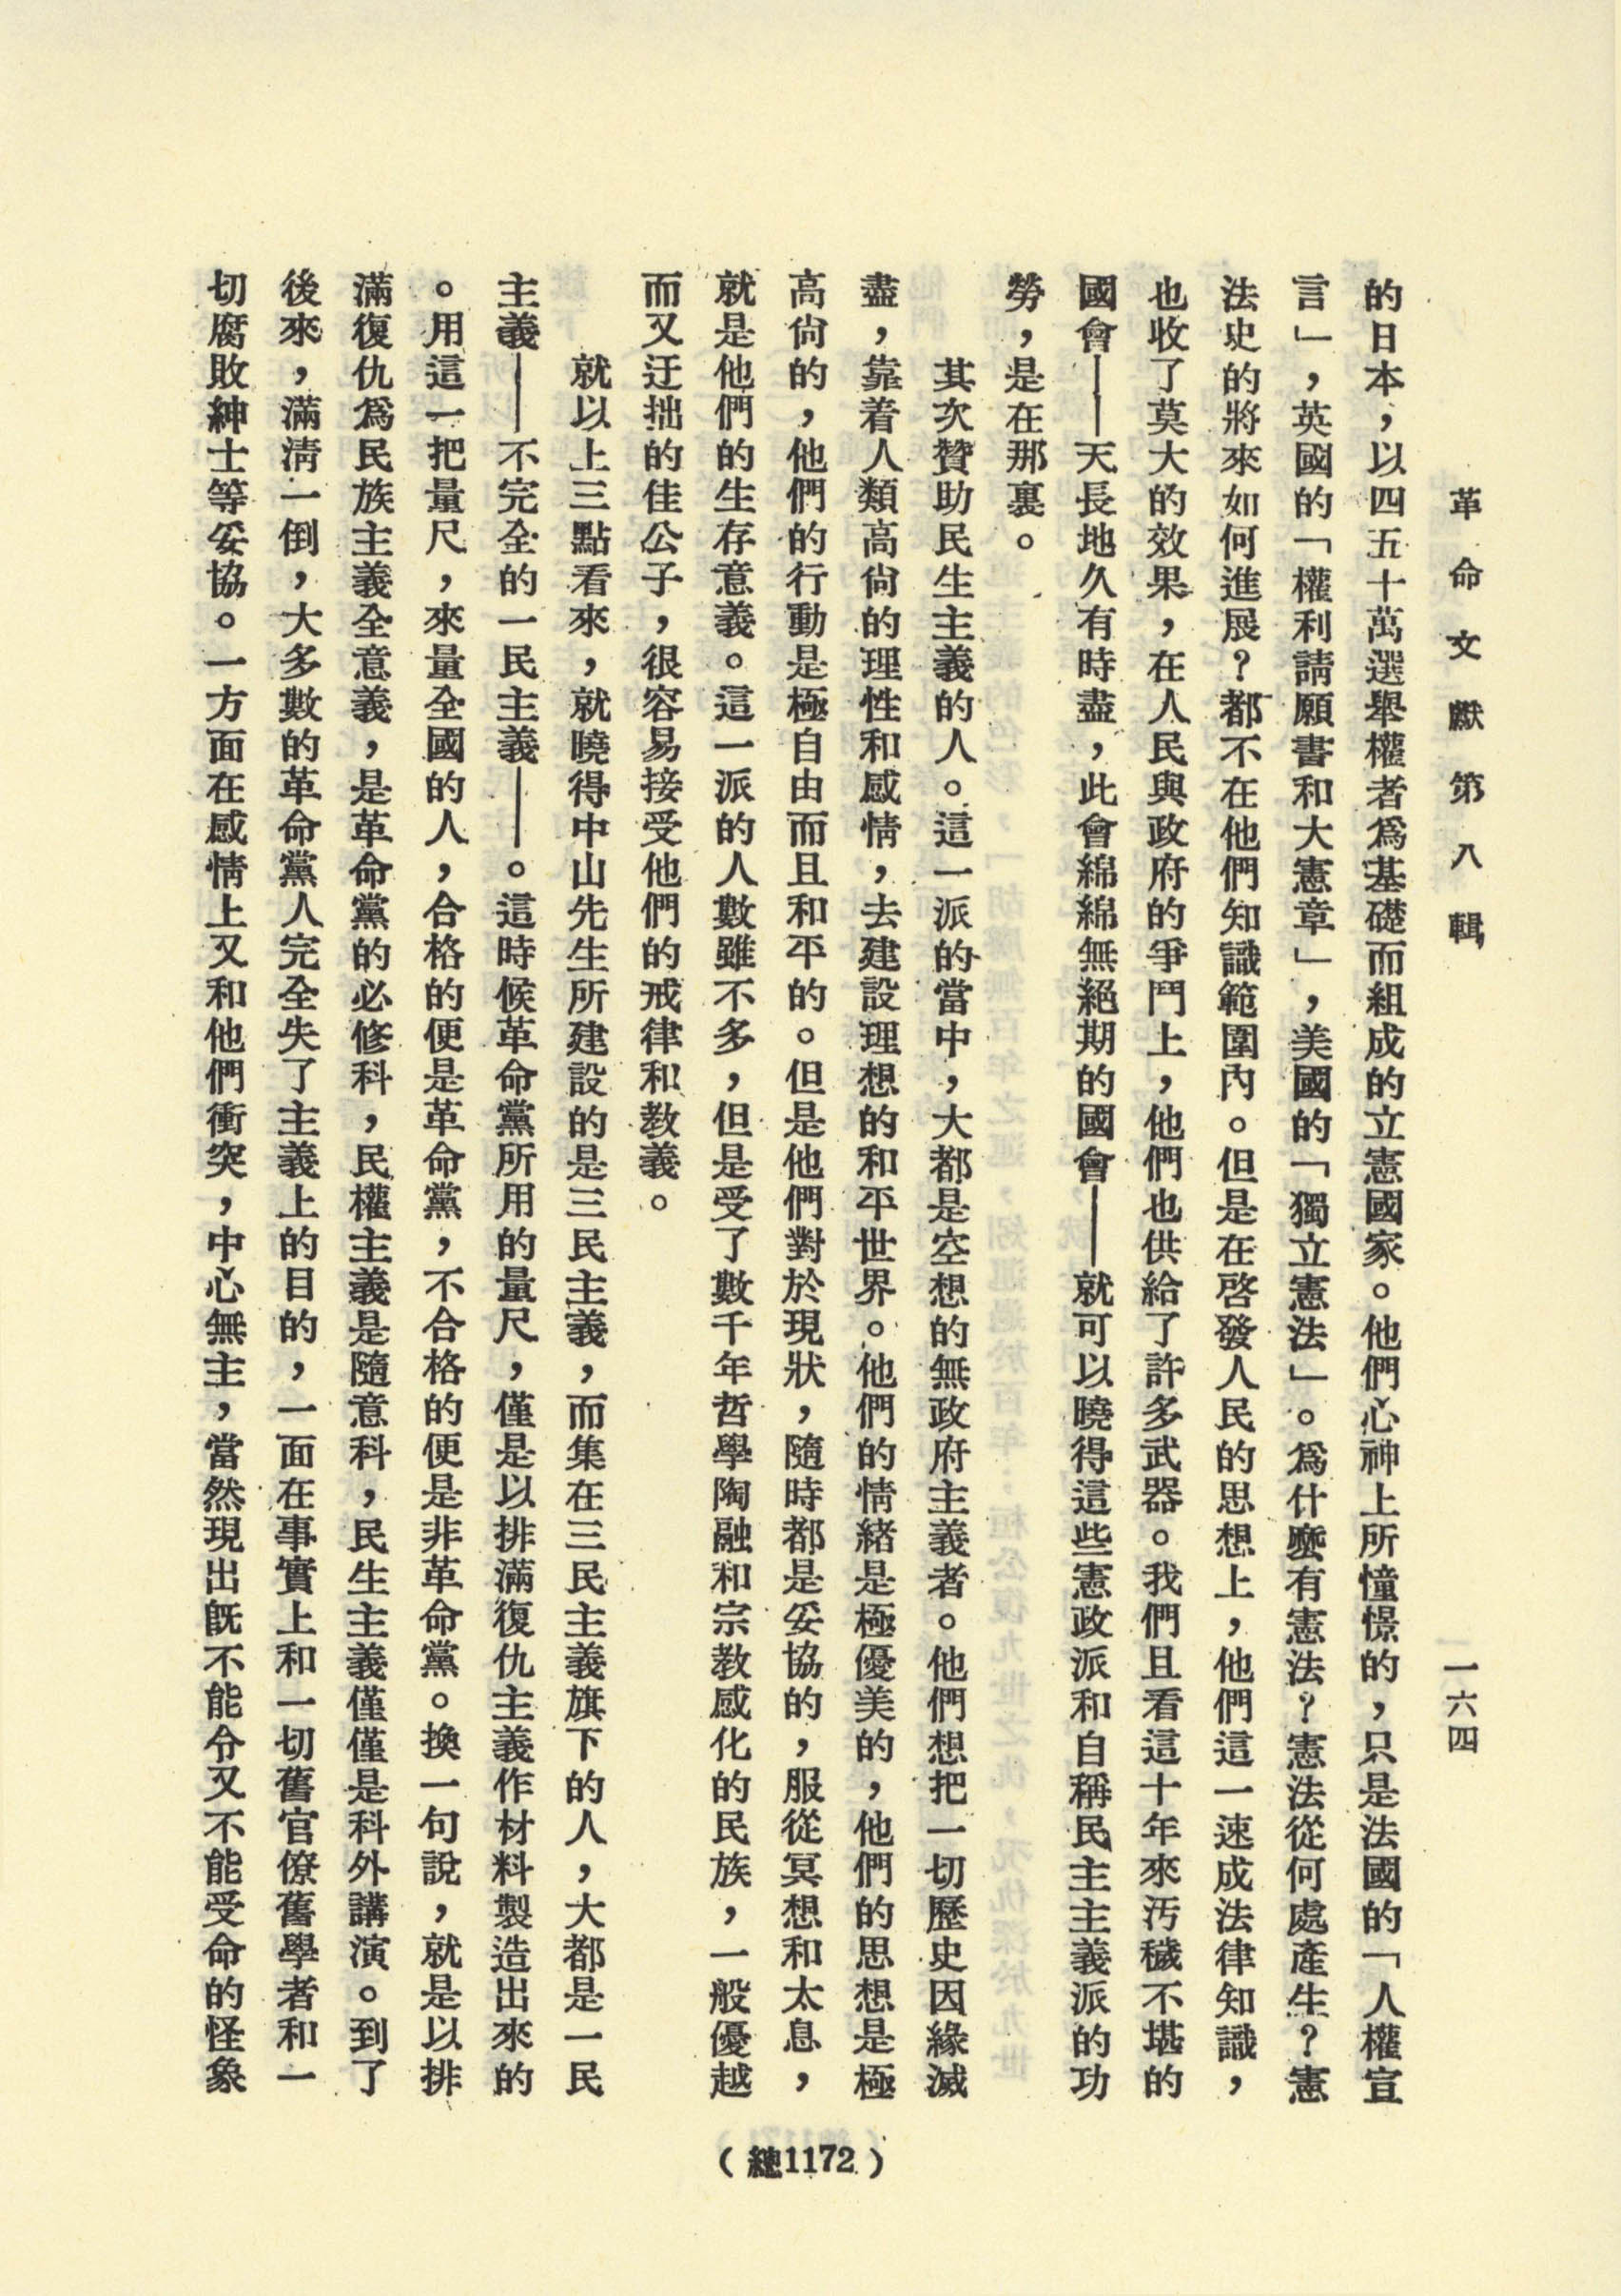 革命文獻第八輯
一六四
的日本，以四五十萬選舉權者爲基礎而組成的立憲國家。他們心神上所憧憬的，只是法國的「人權宣
言」，英國的「權利請願書和大憲章」，美國的「獨立憲法」。爲什麼有憲法？憲法從何處產生？憲
法史的將來如何進展？都不在他們知識範圍內。但是在啓發人民的思想上，他們這一速成法律知識，
也收了莫大的效果，在人民與政府的爭鬥上，他們也供給了許多武器。我們且看這十年來汚穢不堪的
國會——天長地久有時盡，此會綿綿無絕期的國會——就可以曉得這些憲政派和自稱民主主義派的功
勞，是在那裏。
其次贊助民生主義的人。這一派的當中，大都是空想的無政府主義者。他們想把一切歷史因緣滅
盡，靠着人類高尙的理性和感情，去建設理想的和平世界。他們的情緒是極優美的，他們的思想是極
高尙的，他們的行動是極自由而且和平的。但是他們對於現狀，隨時都是妥協的，服從冥想和太息，
就是他們的生存意義。這一派的人數雖不多，但是受了數千年哲學陶融和宗教感化的民族，一般優越
而又迂拙的佳公子，很容易接受他們的戒律和教義。
就以上三點看來，就曉得中山先生所建設的是三民主義，而集在三民主義旗下的人，大都是一民
主義——不完全的一民主義——。這時候革命黨所用的量尺，僅是以排滿復仇主義作材料製造出來的
。用這一把量尺，來量全國的人，合格的便是革命黨，不合格的便是非革命黨。換一句說，就是以排
滿復仇爲民族主義全意義，是革命黨的必修科，民權主義是隨意科，民生主義僅僅是科外講演。到了
後來，滿淸一倒，大多數的革命黨人完全失了主義上的目的，一面在事實上和一切舊官僚舊學者和一
切腐敗紳士等妥協。一方面在感情上又和他們衝突，中心無主，當然現出旣不能令又不能受命的怪象
（總1172）